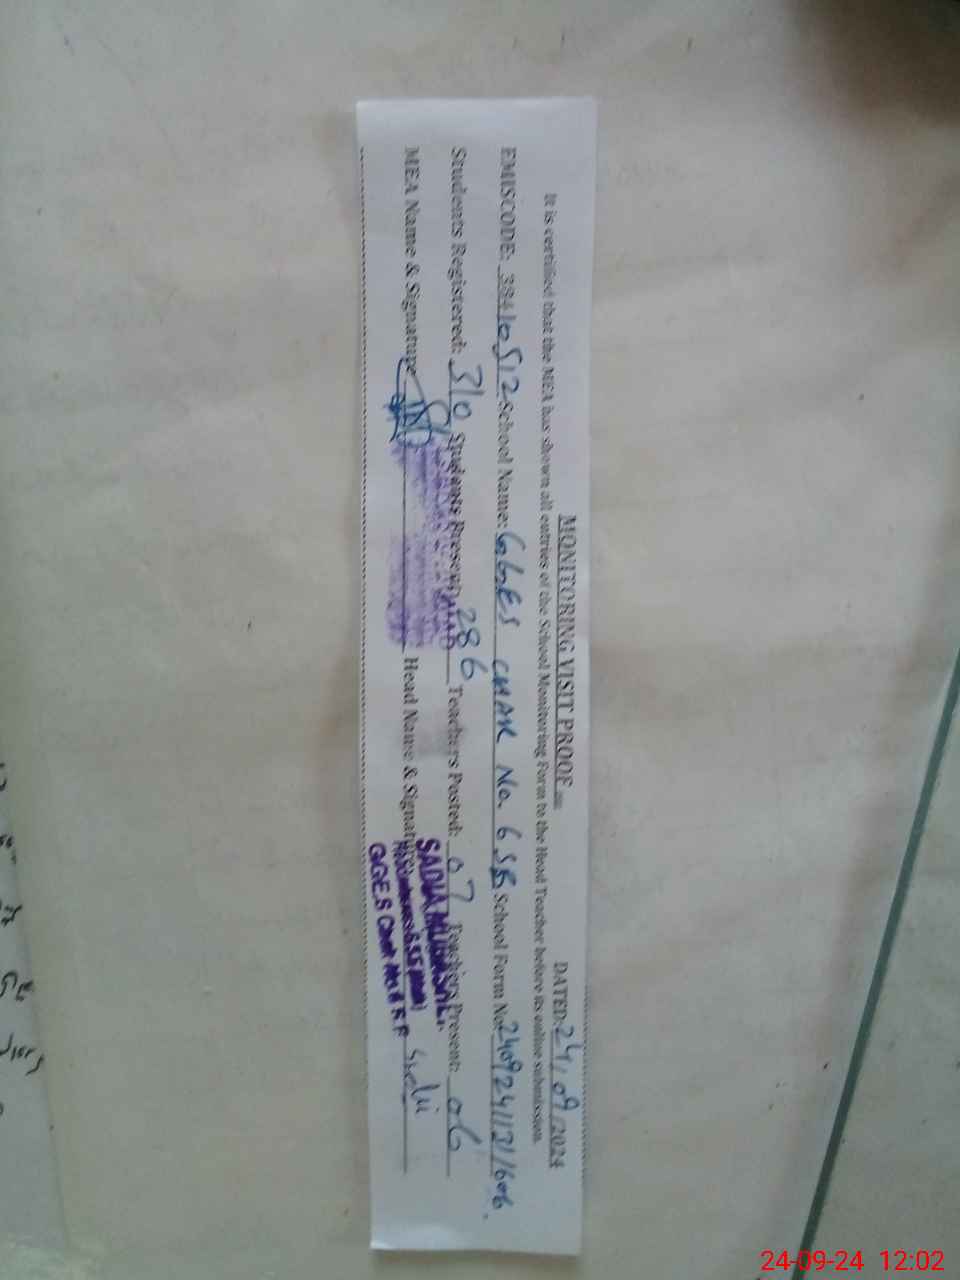 MONITORING VISIT PROOF DATED: 24/09/2024
It is certified that the MEA has shown all entries of the School Monitoring Form to the Head Teacher before its online submission.
EMISCODE: 38410512 School Name: GGES CHAK No. 6 SB School Form No. 240924113
Students Registered: 310 Students Present: 286 Teachers Posted: 07 Teachers Present: 06
MEA Name & Signature Head Name & Signature
SADIA
GGES
24-09-24 12:02